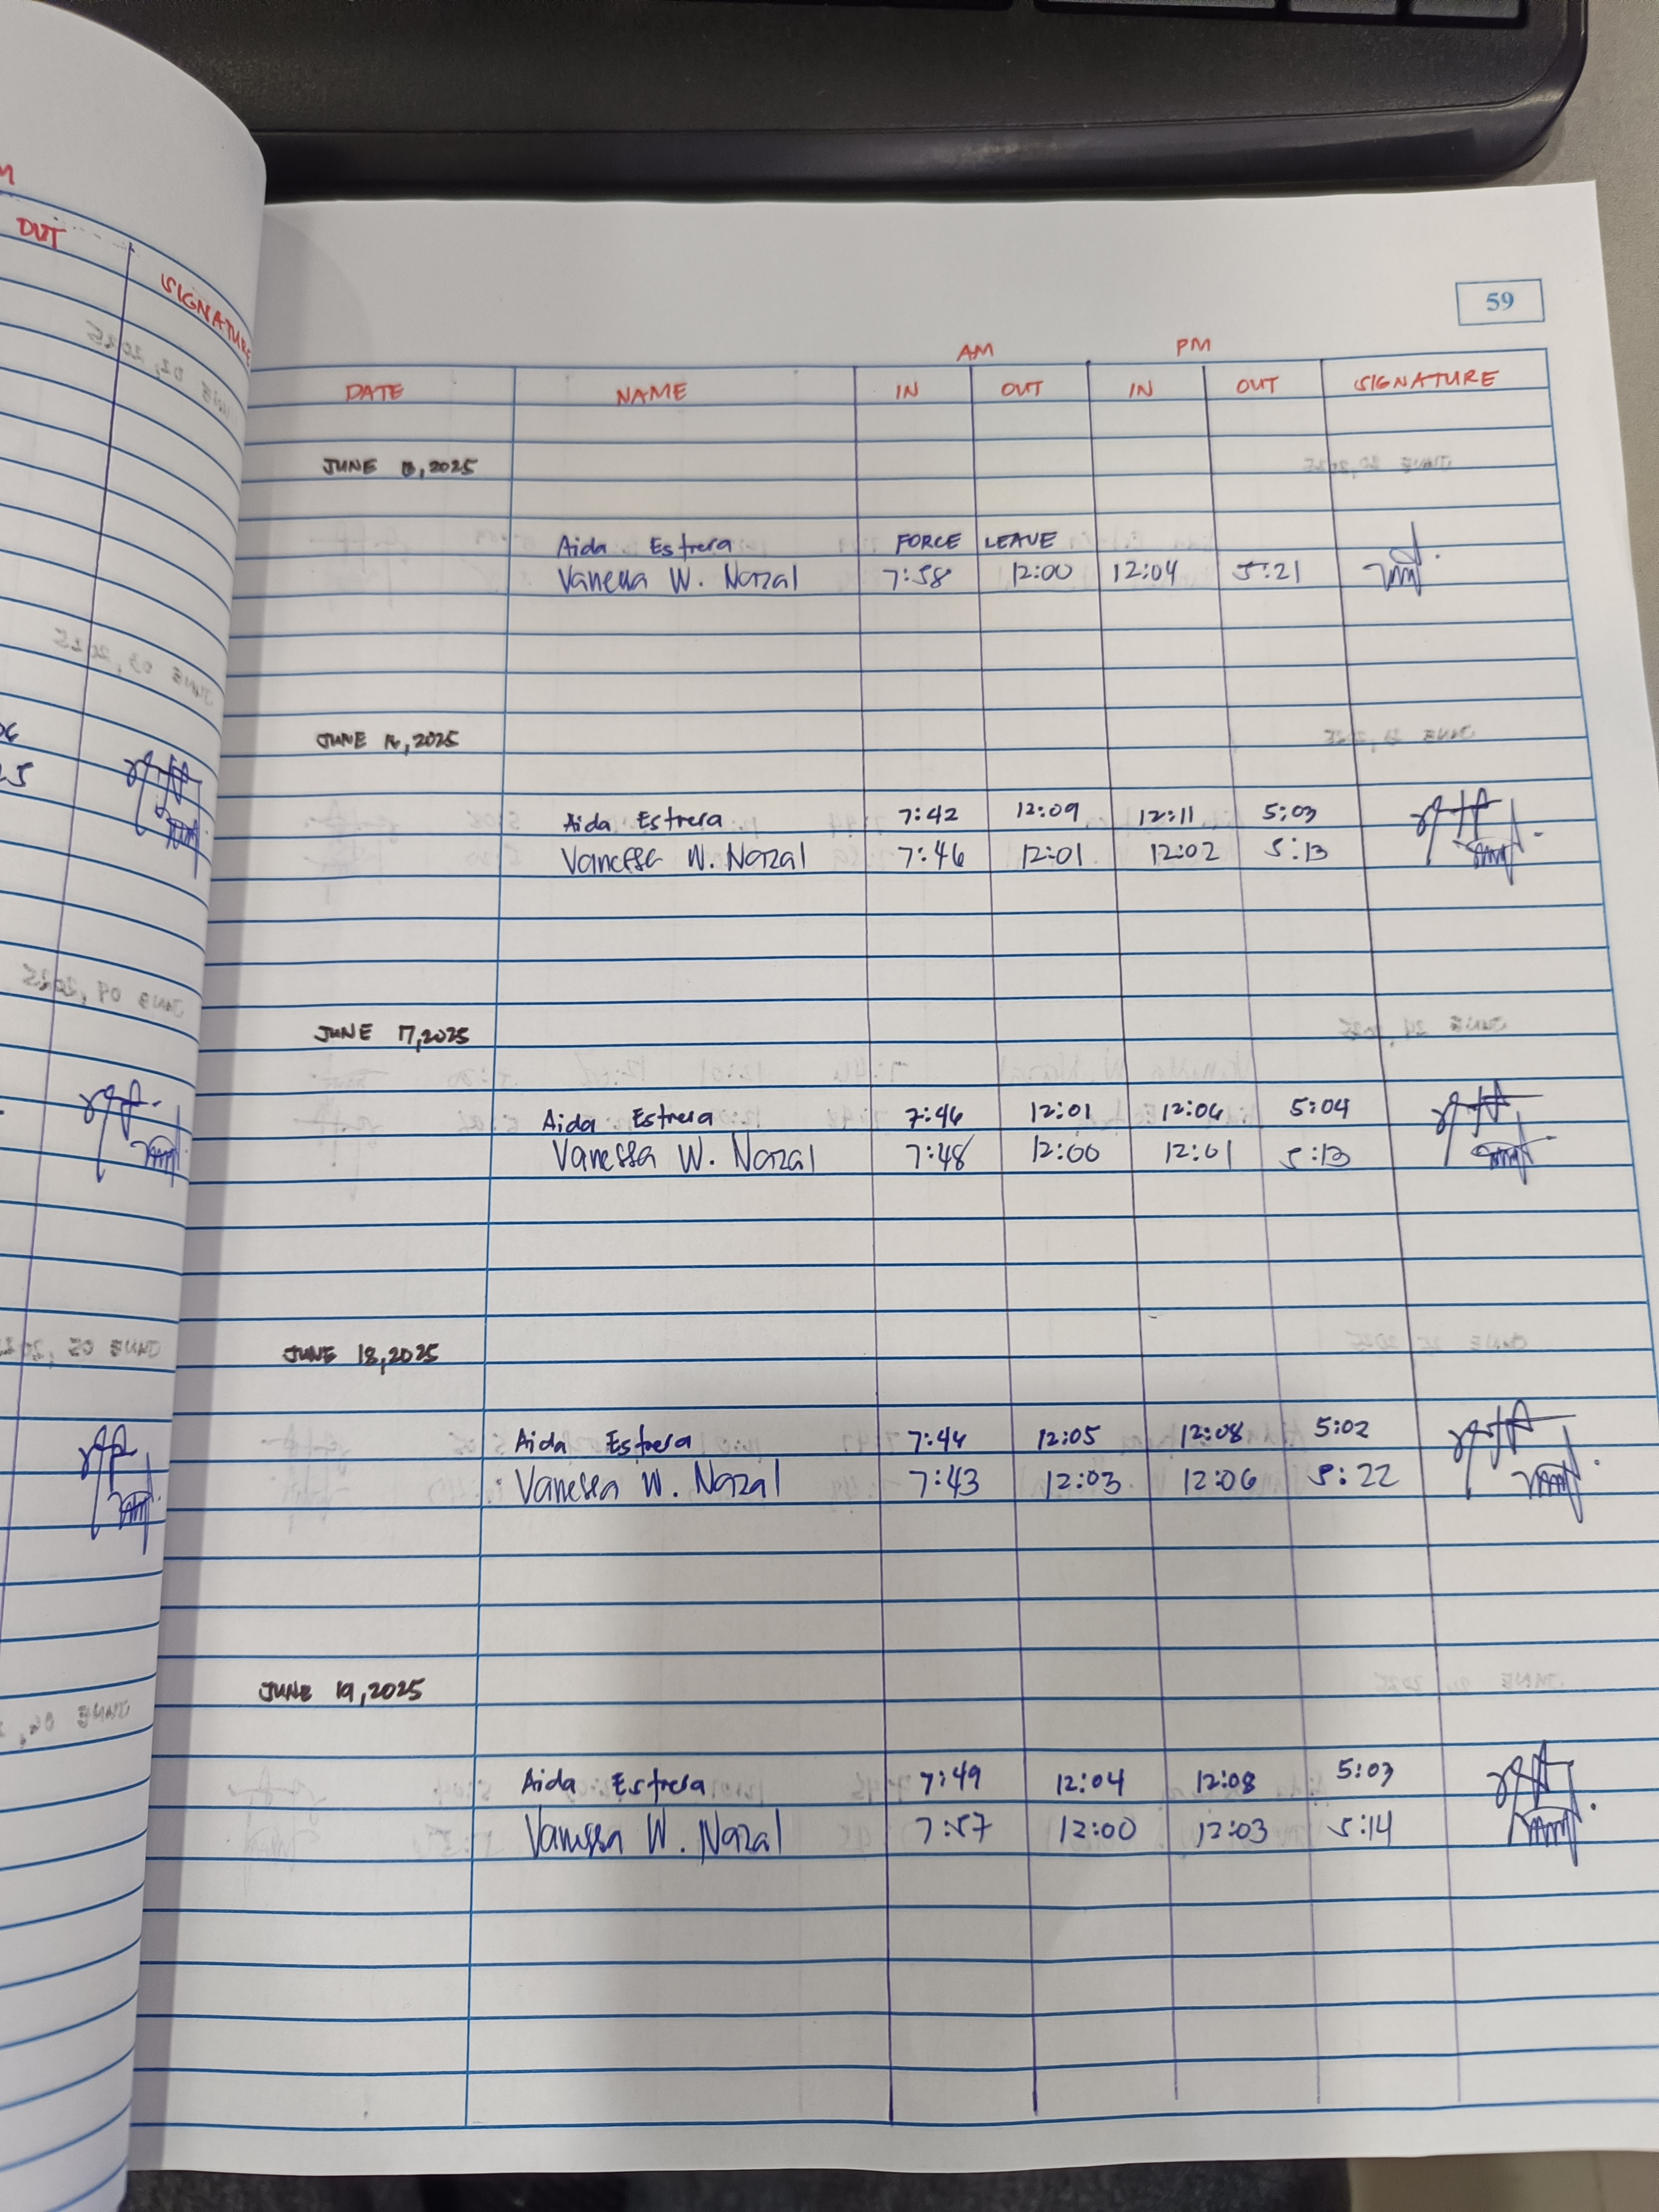 OUT
SIGNATURE
59
AM PM
DATE NAME IN OUT IN OUT SIGNATURE
JUNE 13, 2025
Aida Estrera FORCE LEAVE
Vanessa W. Nazal 7:58 12:00 12:04 5:21
JUNE 16, 2025
Aida Estrera 7:42 12:09 12:11 5:03
Vanessa W. Nazal 7:46 12:01 12:02 5:13
JUNE 17, 2025
Aida Estrera 7:46 12:01 12:06 5:04
Vanessa W. Nazal 7:48 12:00 12:01 5:13
JUNE 18, 2025
Aida Estrera 7:44 12:05 12:08 5:02
Vanessa W. Nazal 7:43 12:03 12:06 5:22
JUNE 19, 2025
Aida Estrera 7:49 12:04 12:08 5:03
Vanessa W. Nazal 7:57 12:00 12:03 5:14